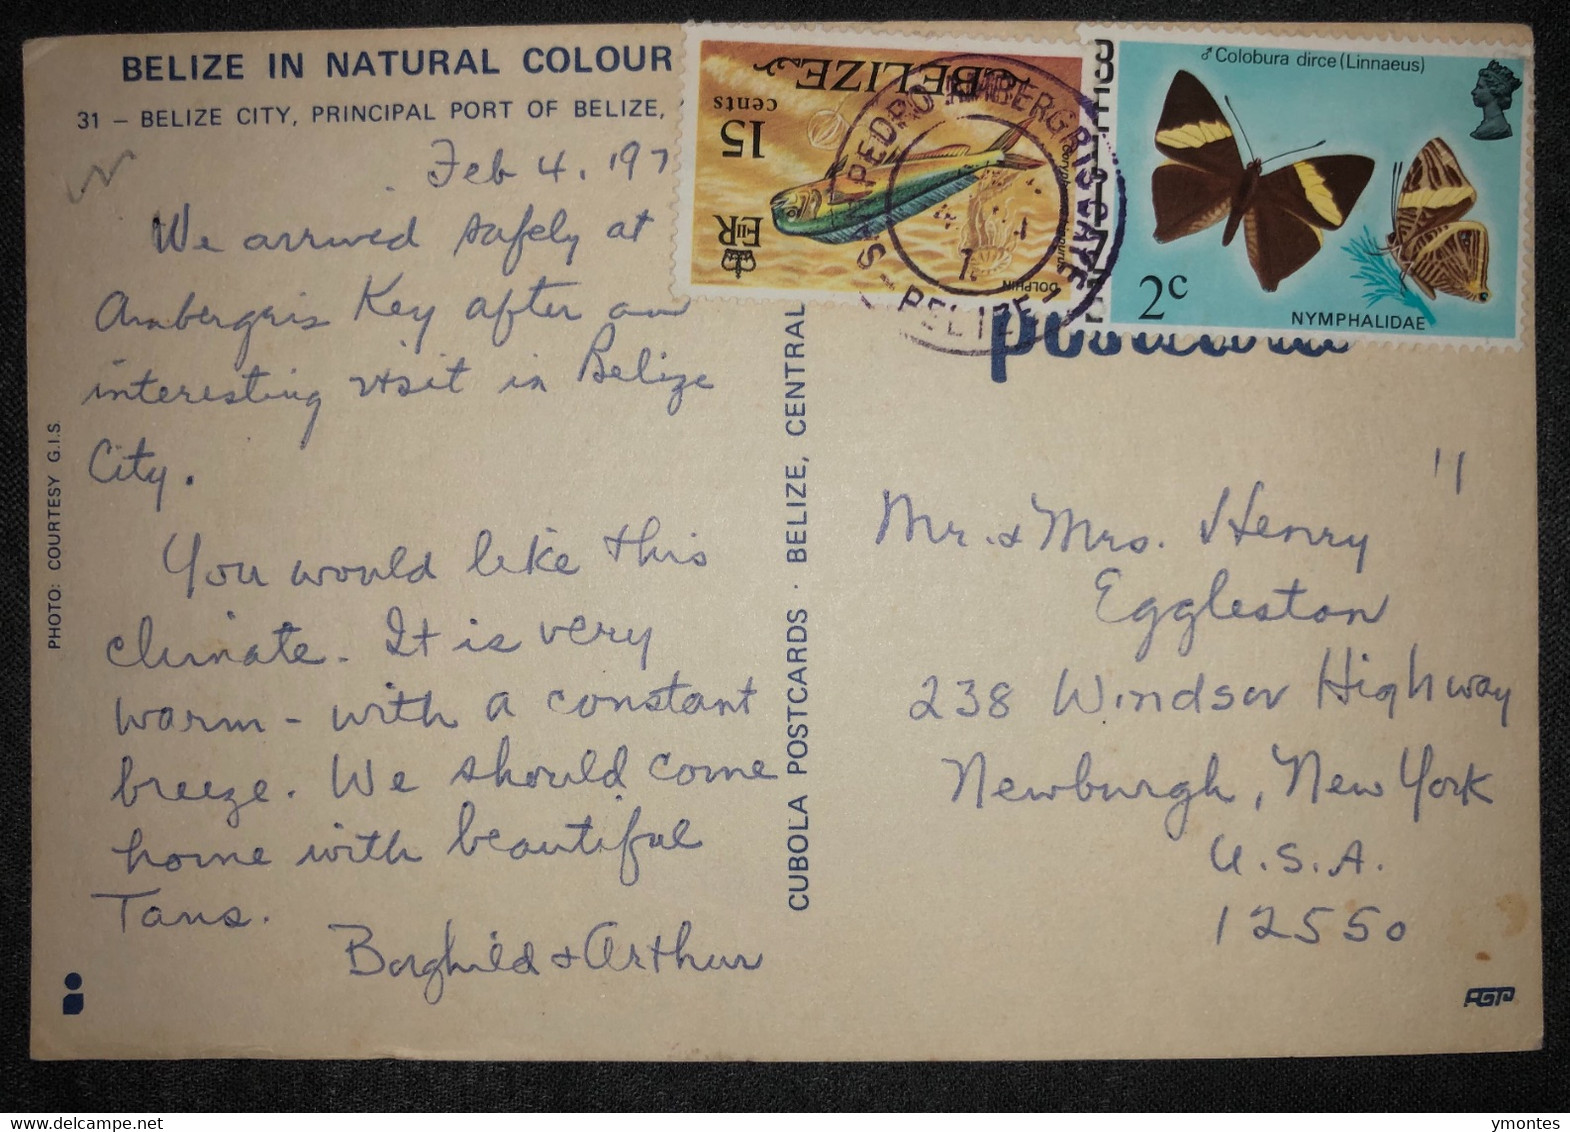 BELIZE IN NATURAL COLOUR
31 – BELIZE CITY, PRINCIPAL PORT OF BELIZE,
Feb 4, 197
We arrived safely at
Ambergris Key after an
interesting visit in Belize
City.
You would like this
climate. It is very
warm – with a constant
breeze. We should come
home with beautiful
Tans.
Borghild & Arthur
PHOTO: COURTESY G.I.S.
CUBOLA POSTCARDS · BELIZE, CENTRAL
BELIZE
15
cents
EIIR
DOLPHIN
SAN PEDRO AMBERGRIS CAYE
BELIZE
♂ Colobura dirce (Linnaeus)
BELIZE
2c
NYMPHALIDAE
postcard
Mr. & Mrs. Henry
Eggleston
238 Windsor Highway
Newburgh, New York
U.S.A.
12550
ymontes